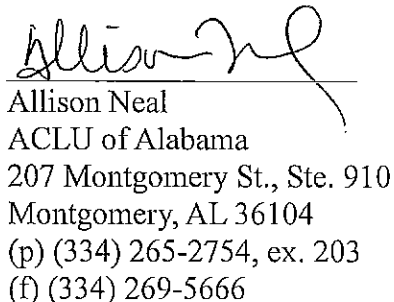 Allison Neal
Allison Neal
ACLU of Alabama
207 Montgomery St., Ste. 910
Montgomery, AL 36104
(p) (334) 265-2754, ex. 203
(f) (334) 269-5666